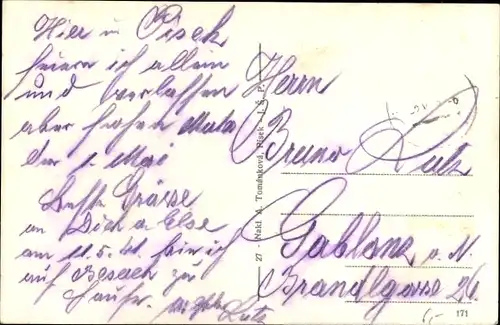 Hier in Pisek
feiern ich allein
und verlassen
aber hohen Muts
den 1. Mai
Beste Grüsse
an Dich u. Else
am 11.5. bin ich
auf Besuch zu
Hause.
Lutz
27 - Nakl. A. Tománková, Písek - J. Š. P.
Herrn
Bruno Lutz
Gablonz a. N.
Brandlgasse 26
171